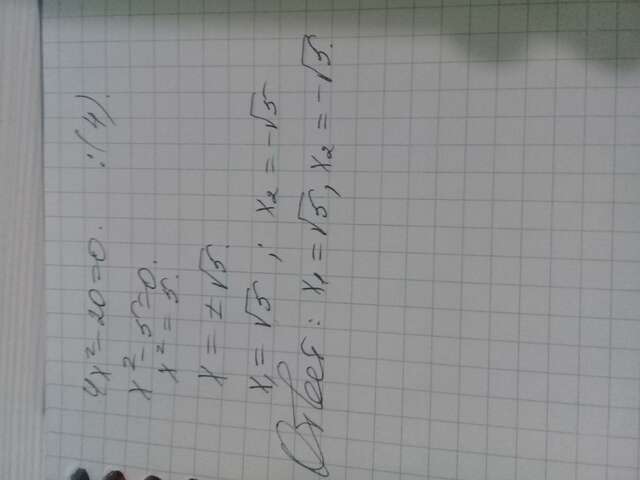 4x²-20=0. :(4).
x²-5=0.
x²=5.
x=±√5.
x₁=√5; x₂=-√5
Ответ: x₁=√5, x₂=-√5.